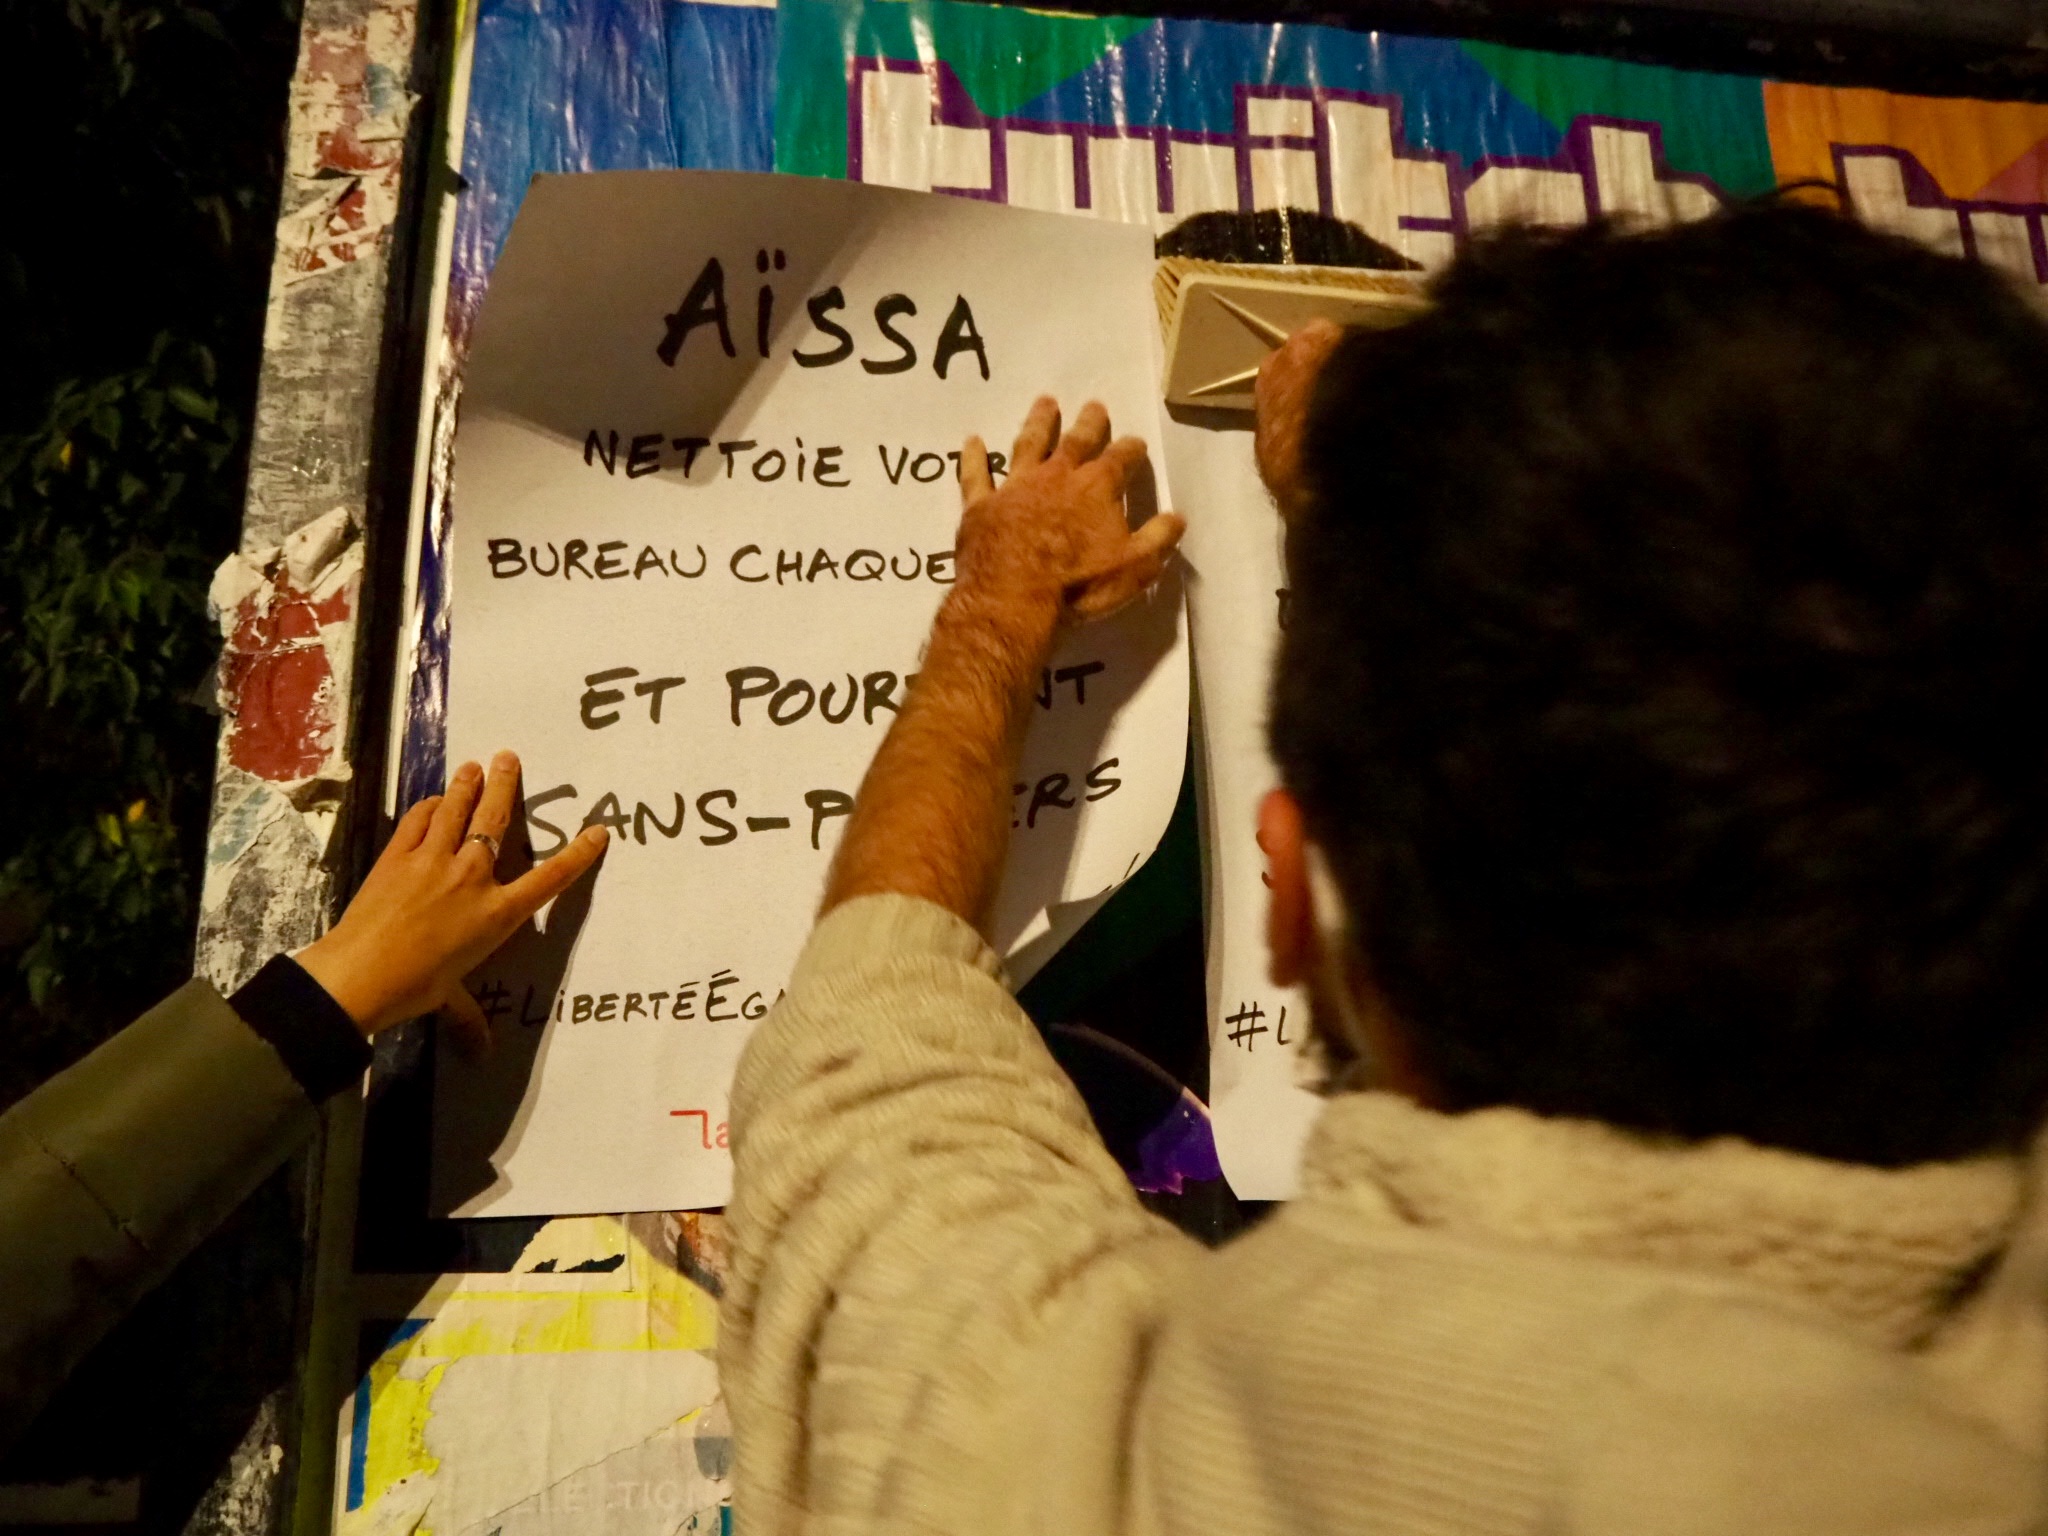 twitch
AÏSSA
NETTOIE VOTR
BUREAU CHAQUE
ET POUR NT
SANS-P ERS
#LIBERTÉÉG
#L